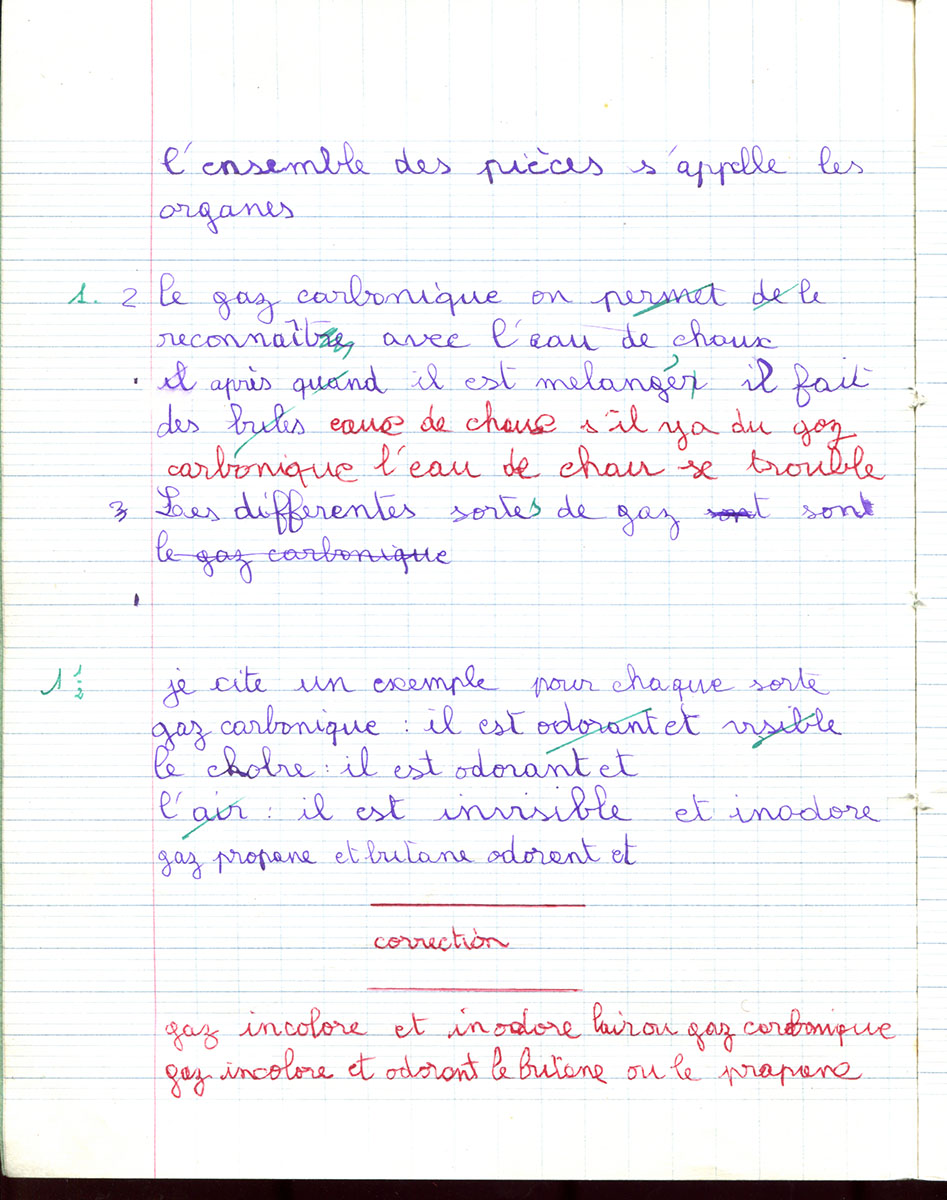 l'ensemble des pièces s'appelle les
organes
1. 2 le gaz carbonique on permet de le
reconnaître avec l'eau de chaux
et après quand il est melanger il fait
des bules eaux de chaux s'il ya du gaz
carbonique l'eau de chau se trouble
3 Les differentes sortes de gaz sont sont
le gaz carbonique
1 1/2 je cite un exemple pour chaque sorte
gaz carbonique : il est odorant et visible
le chlore : il est odorant et
l'air : il est invisible et inodore
gaz propane et butane odorent et
correction
gaz incolore et inodore l'air ou gaz carbonique
gaz incolore et odorant le butane ou le propane